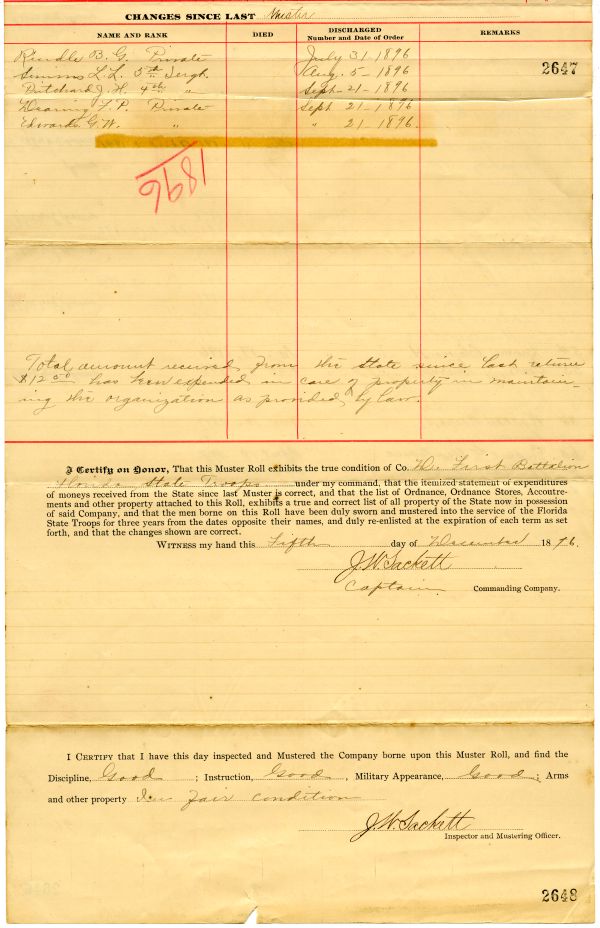 CHANGES SINCE LAST Muster
NAME AND RANK DIED DISCHARGED Number and Date of Order REMARKS
2647
B. G. Private July 31-1896
Simms L. L. 5th Sergt. Aug. 5-1896
Pritchard J. H. 4th " Sept-21-1896
Dearing F. P. Private Sept 21-1896
Edwards G. W. " " 21-1896
1896
Total amount received from the State since last return
$12.00 has been expended in care of property in maintain-
ing the organization as provided by law.
I Certify on Honor, That this Muster Roll exhibits the true condition of Co. "D" First Battalion
Florida State Troops under my command, that the itemized statement of expenditures
of moneys received from the State since last Muster is correct, and that the list of Ordnance, Ordnance Stores, Accoutre-
ments and other property attached to this Roll, exhibits a true and correct list of all property of the State now in possession
of said Company, and that the men borne on this Roll have been duly sworn and mustered into the service of the Florida
State Troops for three years from the dates opposite their names, and duly re-enlisted at the expiration of each term as set
forth, and that the changes shown are correct.
WITNESS my hand this Fifth day of December 1896.
J. W. Sackett
Captain Commanding Company.
I CERTIFY that I have this day inspected and Mustered the Company borne upon this Muster Roll, and find the
Discipline, Good ; Instruction, Good , Military Appearance, Good ; Arms
and other property In fair condition
J. W. Sackett
Inspector and Mustering Officer.
2648